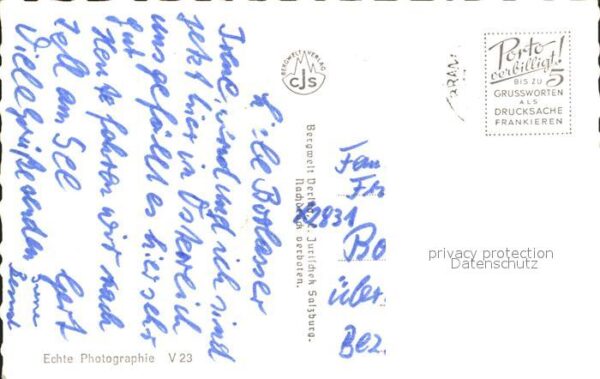 Liebe Botlasser
Irene, wird und ich sind
jetzt hier in Österreich
uns gefällt es hier sehr
gut
Heute fahren wir nach
Zell am See
Viele Grüße senden
Gert
BERGWELT VERLAG
CJS
Bergwelt Verlag C. Jurischek Salzburg.
Nachdruck verboten.
Echte Photographie V 23
Porto
verbilligt!
BIS ZU 5
GRUSSWORTEN
ALS
DRUCKSACHE
FRANKIEREN
Fam
Fr
X9831
Bo
über
Bez.
privacy protection
Datenschutz